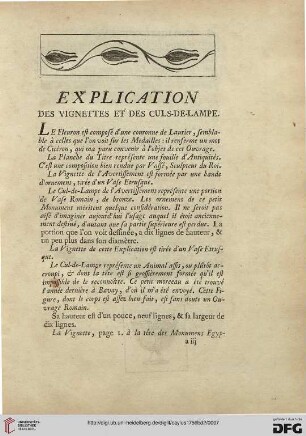 EXPLICATION
DES VIGNETTES ET DES CULS-DE-LAMPE.
LE Fleuron est composé d'une couronne de Laurier, sembla-
ble à celles que l'on voit sur les Medailles: il renferme un mot
de Cicéron, qui m'a paru convenir à l'objet de cet Ouvrage.
La Planche du Titre représente une fouille d'Antiquités.
C'est une composition bien rendue par Vassé, Sculpteur du Roi.
La Vignette de l'Avertissement est formée par une bande
d'ornemens, tirée d'un Vase Etrusque.
Le Cul-de-Lampe de l'Avertissement représente une portion
de Vase Romain, de bronze. Les ornemens de ce petit
Monument méritent quelque considération. Il ne seroit pas
aisé d'imaginer aujourd'hui l'usage auquel il étoit ancienne-
ment destiné, d'autant que sa partie supérieure est perdue. La
portion que l'on voit dessinée, a dix lignes de hauteur, &
un peu plus dans son diamètre.
La Vignette de cette Explication est tirée d'un Vase Etrus-
que.
Le Cul-de-Lampe représente un Animal assis, ou plûtôt ac-
croupi, & dont la tête est si grossièrement formée qu'il est
impossible de le reconnoître. Ce petit morceau a été trouvé
l'année dernière à Bavay, d'où il m'a été envoyé. Cette Fi-
gure, dont le corps est assez bien fait, est sans doute un Ou-
vrage Romain.
Sa hauteur est d'un pouce, neuf lignes, & sa largeur de
dix lignes.
La Vignette, page 1. à la tête des Monumens Egyp-
a iij
UNIVERSITÄTS-
BIBLIOTHEK
HEIDELBERG